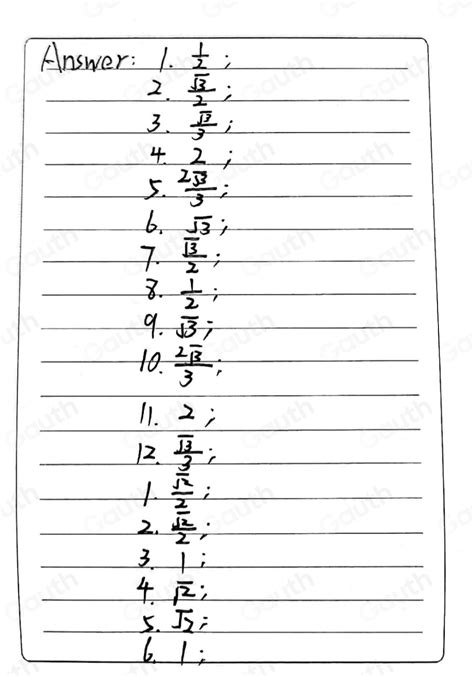 Answer: 1. 1/2 ;
2. √3/2 ;
3. √3/3 ;
4. 2 ;
5. 2√3/3 ;
6. √3 ;
7. √3/2 ;
8. 1/2 ;
9. √3 ;
10. 2√3/3 ;
11. 2 ;
12. √3/3 ;
1. √2/2 ;
2. √2/2 ;
3. 1 ;
4. √2 ;
5. √2 ;
6. 1 ;